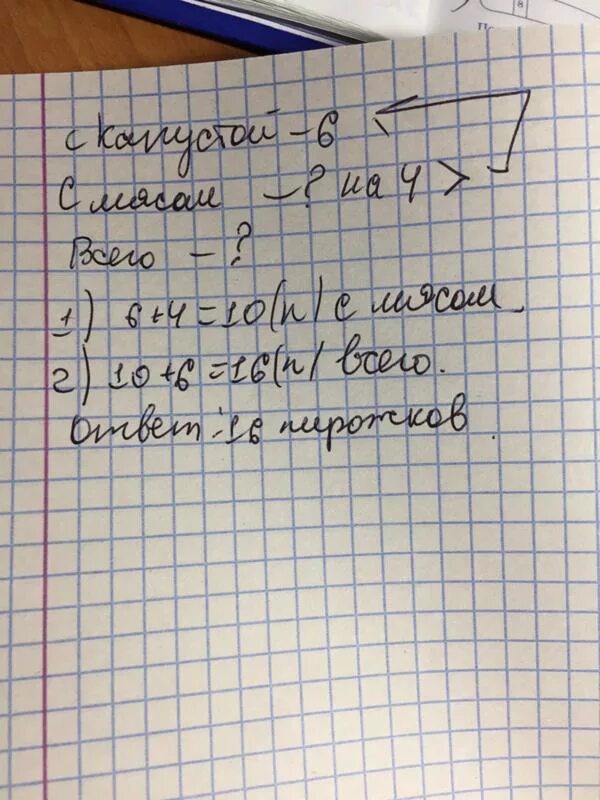 с капустой – 6
С мясом – ? на 4 >
Всего – ?
1) 6+4=10(п) с мясом.
2) 10+6=16(п) всего.
Ответ: 16 пирожков.